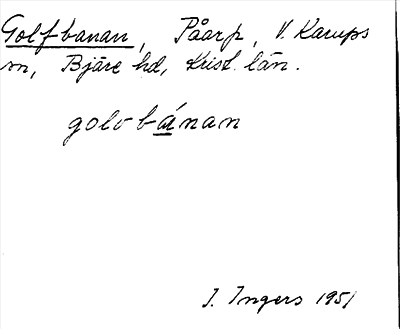 Golfbanan, Påarp, V. Karups
sn, Bjäre hd, Krist. län.
golvbánan
I. Ingers 1951